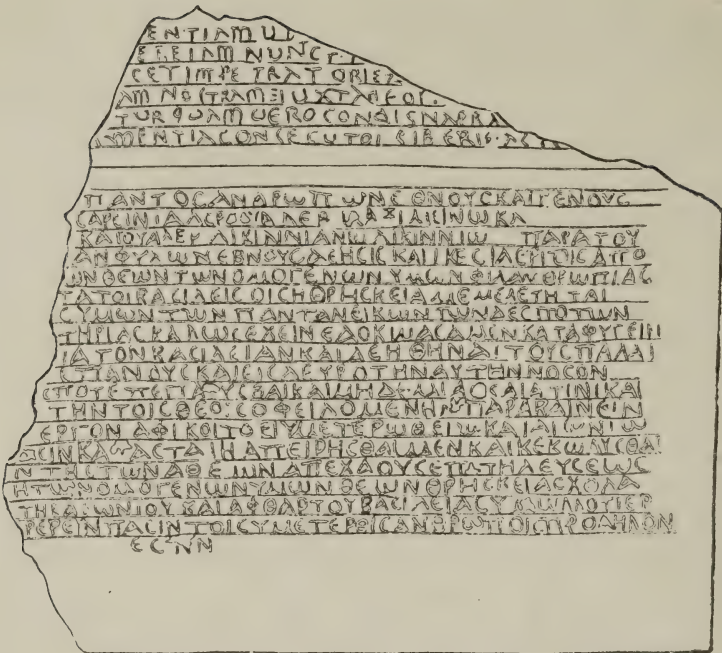 ENTIAM UI
ETEIAM NUNC P
CET IMPETRATORIES
AM NOSTRAM EI UXTA DEOS
TUR QUAM UERO CON DIS NARRA
AMENTIA CONSECUTOI LIBERIS AC
ΠΑΝΤΟCΑΝΘΡΩΠΩΝΕΘΝΟΥCΚΑΙΓΕΝΟΥC
CΑΡCΙΝΙΑΛΕΡΟΟΙΑΛΕΡ ΜΑΞΙΜΙΝΩΚΑ
ΚΑΙΟΥΑΛΕΡ ΛΙΚΙΝΝΙΑΝΩΛΙΚΙΝΝΙΩ ΠΑΡΑΤΟΥ
ΑΜΦΥΛΩΝΕΘΝΟΥCΔΕΗCΙC ΚΑΙΙΚΕCΙΑΕΡΓΟΙCΑΠΟ
ΩΝΘΕΩΝΤΩΝΟΜΟΓΕΝΩΝΥΜΩΝΦΙΛΑΝΘΡΩΠΙΑC
ΤΑΤΟΙΒΑCΙΛΕΙCΟΙCΗΘΡΗCΚΕΙΑΜΕΜΕΛΕΤΗΤΑΙ
CΥΜΩΝΤΩΝΠΑΝΤΑΝΕΙΚΩΝΤΩΝΔΕCΠΟΤΩΝ
ΤΗΡΙΑCΚΑΛΩCΕΧΕΙΝΕΔΟΚΙΜΑCΑΜΕΝΚΑΤΑΦΥΓΕΙΝ
ΙΑΤΟΝΒΑCΙΛΕΙΑΝΚΑΙΔΕΗΘΗΝΑΙΤΟΥCΠΑΛΑΙ
CΤΙΑΝΟΥCΚΑΙΕΙCΔΕΥΡΟΤΗΝΑΥΤΗΝΝΟCΟΝ
CΠΟΤΕΠΕΠΑΥCΘΑΙΚΑΙΜΗΔΕΜΙΑCΚΑΙΑΙΤΙΝΙΚΑΙ
ΤΗΝΤΟΙCΘΕΟΙCΟΦΕΙΛΟΜΕΝΗΝΠΑΡΑΒΑΙΝΕΙΝ
ΕΡΓΟΝΑΦΙΚΟΙΤΟΕΙΥΜΕΤΕΡΩΘΕΙΩΚΑΙΑΙΩΝΙΩ
CΙΝΚΑΤΑCΤΑΙΗΑΠΕΙΡΗCΘΑΙΜΕΝΚΑΙΚΕΚΩΛΥCΘΑΙ
Ν ΤΗCΤΩΝΑΘΕΩΝΑΠΕΧΘΟΥCΕΠΙΤΗΔΕΥCΕΩC
ΗΤΩΝΟΜΟΓΕΝΩΝΥΜΩΝΘΕΩΝΘΡΗCΚΕΙΑCΧΟΛΑ
ΤΗCΑΙΩΝΙΟΥΚΑΙΑΦΘΑΡΤΟΥΒΑCΙΛΕΙΑCΥΜΩΝΟΠΕΡ
ΦΕΡΕΙΝΠΑCΙΝΤΟΙCΥΜΕΤΕΡΟΙCΑΝΘΡΩΠΟΙCΠΡΟΔΗΛΟΝ
ΕCΤΙΝ